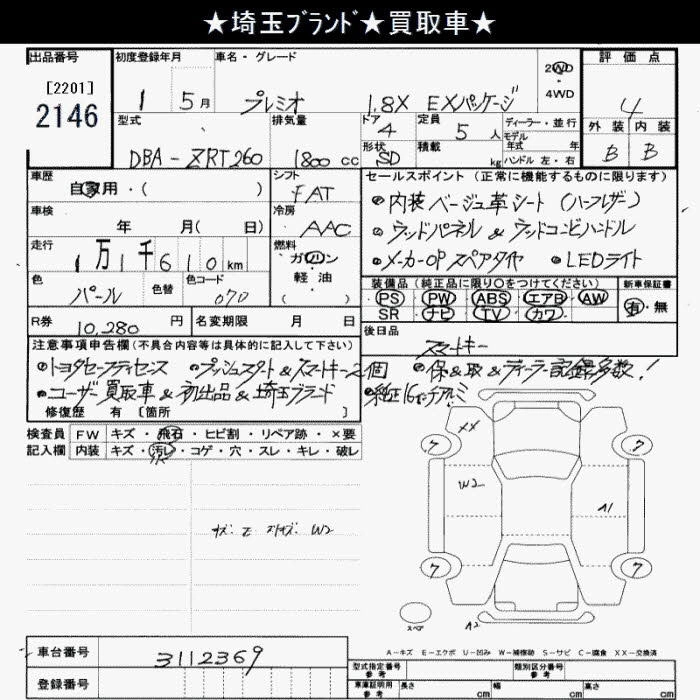 ★埼玉ﾌﾞﾗﾝﾄﾞ★買取車★
出品番号
[2201]
2146
初度登録年月
1 5月
車名・グレード
プレミオ 1.8X EXパッケージ
2WD
4WD
評価点
4
外装 内装
B B
型式
DBA-ZRT260
排気量
1800 cc
ドア
4
形状
SD
定員
5 人
積載
kg
ディーラー・並行
モデル
年式 年
ハンドル 左・右
車歴
自家用・( )
シフト
FAT
車検
年 月( 日)
冷房
AAC
走行
1万1千610km
燃料
ガソリン
軽油
( )
色
パール
色替
色コード
070
R券
10,280 円
名変期限 月 日
セールスポイント (正常に機能するものに限ります)
●内装ベージュ革シート(ハーフレザー)
●ウッドパネル&ウッドコンビハンドル
●メーカーOPスペアタイヤ ●LEDライト
装備品 (純正品に限り○をつけてください)
PS PW ABS エアB AW
SR ナビ TV カワ
新車保証書
有・無
後日品
スマートキー
注意事項申告欄(不具合内容等は具体的に記入して下さい)
●トヨタセーフティセンス ●プッシュスタート&スマートキー2個 ●保&取&ディーラー記録多数!
●ユーザー買取車&初出品&埼玉ブランド ●純正16インチアルミ
修復歴 有 [箇所 ]
検査員
記入欄
FW キズ・飛石・ヒビ割・リペア跡・×要
内装 キズ・汚レ・コゲ・穴・スレ・キレ・破レ
XX
W2
A1
7
7
7
7
スペア
A2
A-キズ E-エクボ U-凹み W-補修跡 S-サビ C-腐食 XX-交換済
車台番号
3112369
登録番号
型式指定番号
類別区分番号
参考
車庫証明用
参考
長さ cm
幅 cm
高さ cm